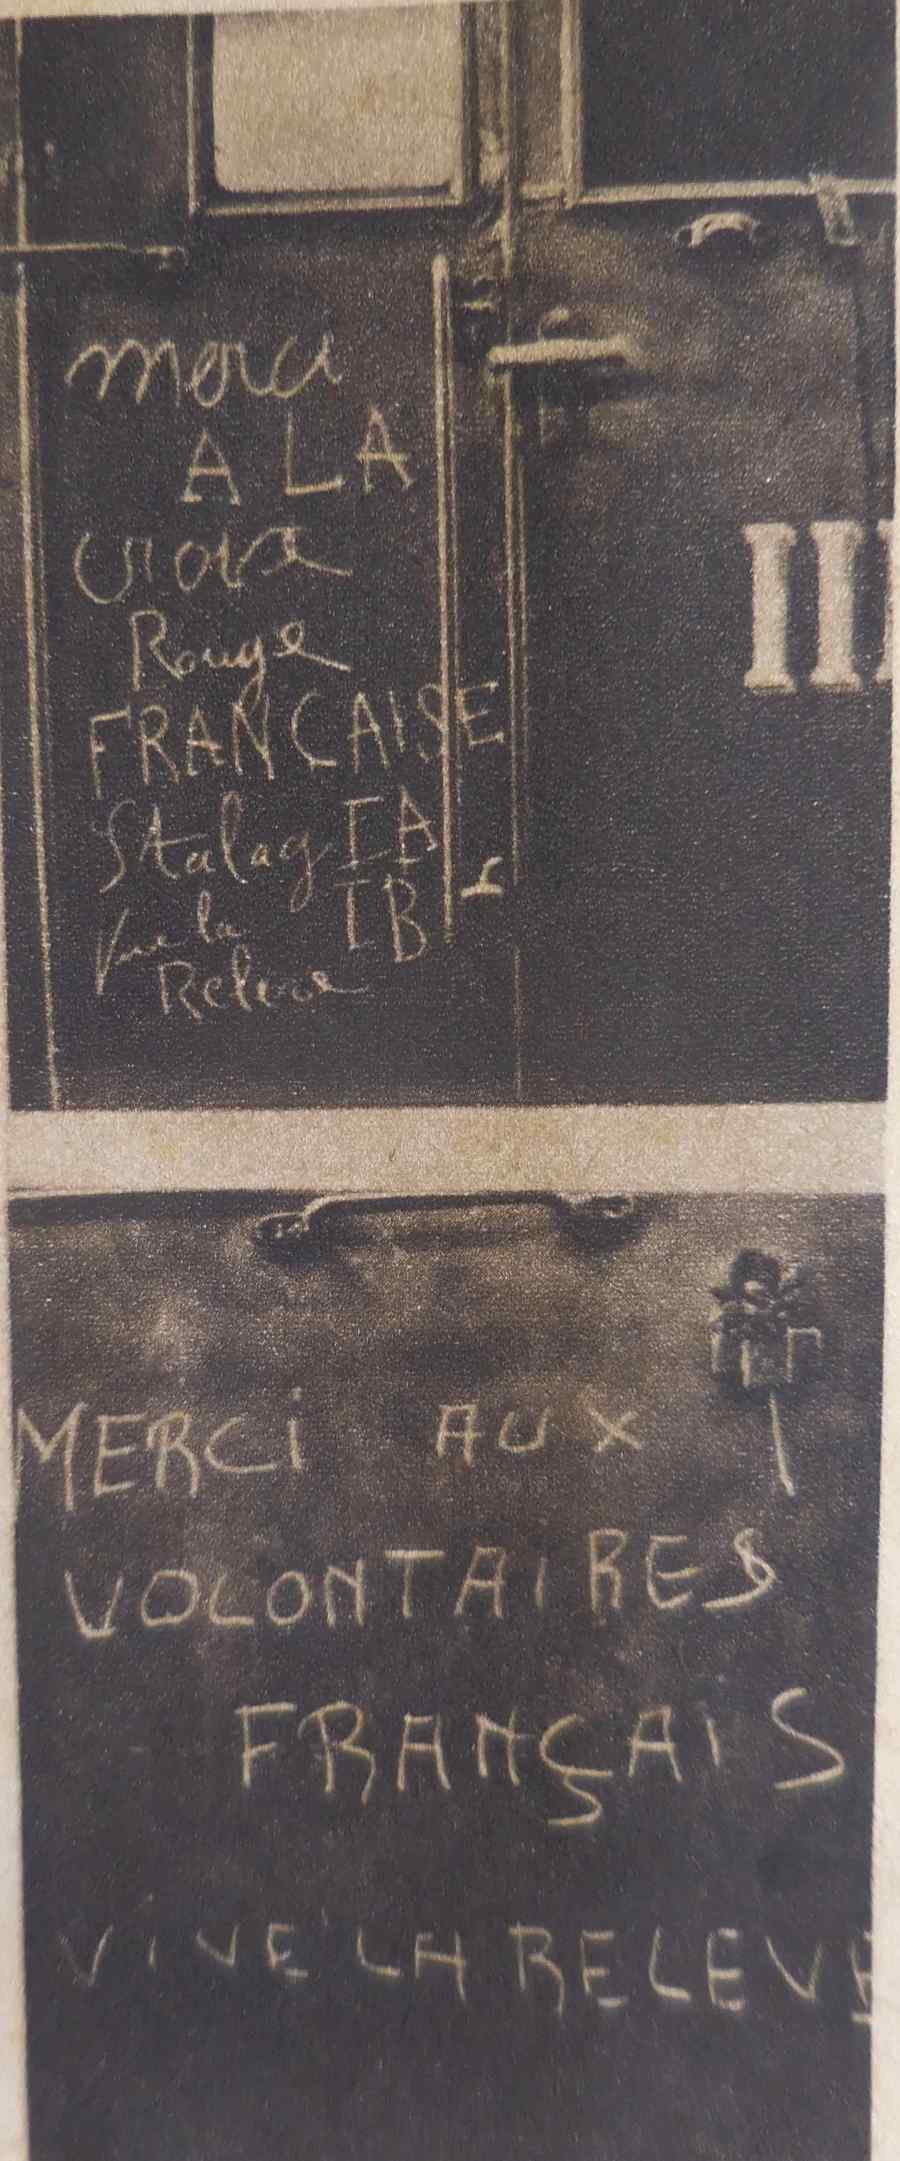 merci
A LA
croix
Rouge
FRANCAISE
Stalag IA
IB
Vive la
Releve
III
MERCi AUX
VOLONTAIRES
FRANÇAiS
ViVE LA RELEVE